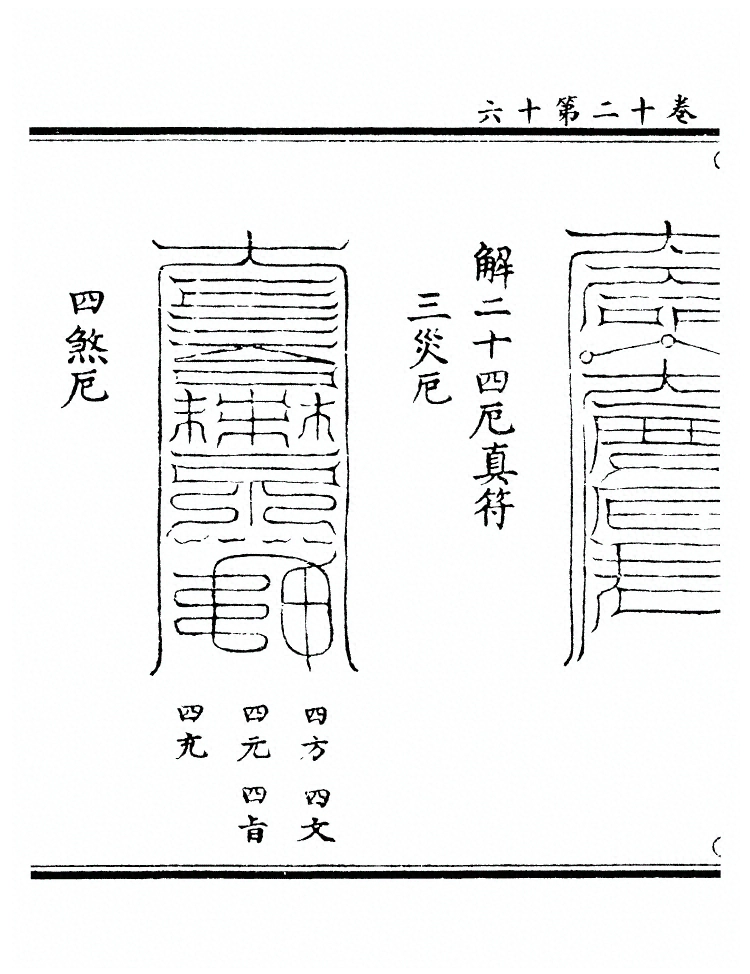 六十第二十卷
解二十四厄真符
三災厄
四煞厄
四方 四文
四元 四旨
四充